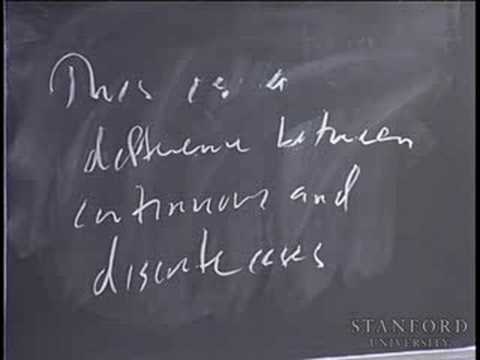 This is a
difference between
continuous and
discrete cases
STANFORD
UNIVERSITY